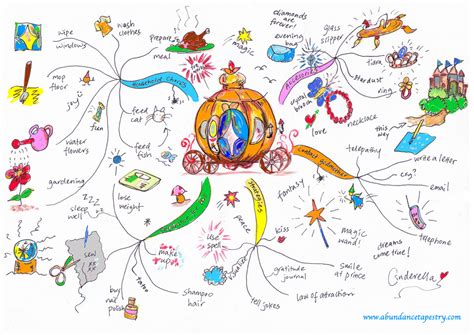 wipe
windows
wash
clothes
prepare
meal
magic
diamonds
are
forever!
evening
bag
glass
slipper
tiara
stardust
ring
Household Chores
Accessories
mop
floor
joy
fun
feed
cat
feed
fish
water
flowers
gardening
love
necklace
this
way
telepathy
write a letter
cry?
email
telephone
ZZZ
sleep
well
lose
weight
sew
buy
make
ups
shampoo
hair
use
spell
kiss
fantasy
magic
wand!
dreams
come true!
smile
at prince
gratitude
journal
law of attraction
tell jokes
Cinderella
www.abundancetapestry.com